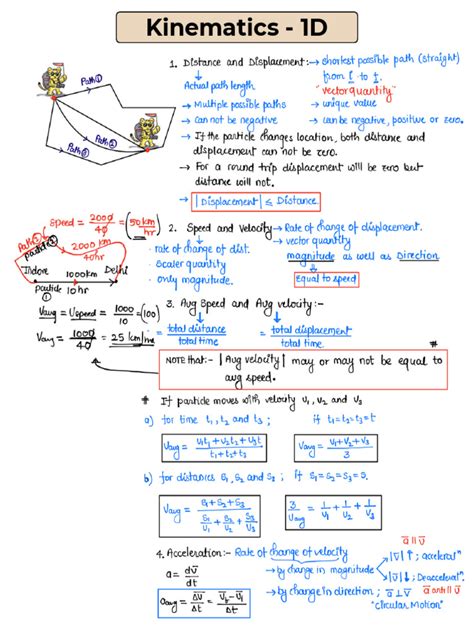 Kinematics - 1D
1. Distance and Displacement:- → shortest possible path (straight)
Actual path length
from i to f.
"vector quantity"
→ Multiple possible paths
→ unique value
→ can not be negative
→ can be negative, positive or zero.
→ If the particle changes location, both distance and
displacement can not be zero.
→ For a round trip displacement will be zero but
distance will not.
→ |Displacement| ≤ Distance
Path①
Path②
Path③
Speed = 2000/40 = (50 km/hr)
Path②
particle ②
2000 km
40hr
Indore 1000km Delhi
particle
①
Vavg = Uspeed = 1000/10 = (100)
Vavg = 1000/40 = 25 km/hr
2. Speed and Velocity → Rate of change of displacement.
→ rate of change of dist.
→ vector quantity
→ Scaler quantity
magnitude as well as Direction
→ Only magnitude.
Equal to speed
3. Avg Speed and Avg velocity:-
= total distance / total time
= total displacement / total time
#
NOTE that:- |Avg velocity| may or may not be equal to
avg speed.
# If particle moves with velocity V1, V2 and V3
a) for time t1, t2 and t3; if t1=t2=t3=t
Vavg = V1t1+V2t2+V3t / t1+t2+t3
Vavg = V1+V2+V3 / 3
b) for distances S1, S2 and S3; if S1=S2=S3=S.
Vavg = S1+S2+S3 / S1/V1 + S2/V2 + S3/V3
3/Vavg = 1/V1 + 1/V2 + 1/V3
4. Acceleration:- Rate of change of velocity
a||v
→ |v|↑; acceleratn"
a = dv/dt
→ by change in magnitude
→ |v|↓; Deacceleratn".
→ by change in direction; a⊥v
a anti|| v
aavg = Δv/Δt = Vf-Vi/Δt
"Circular Motion"